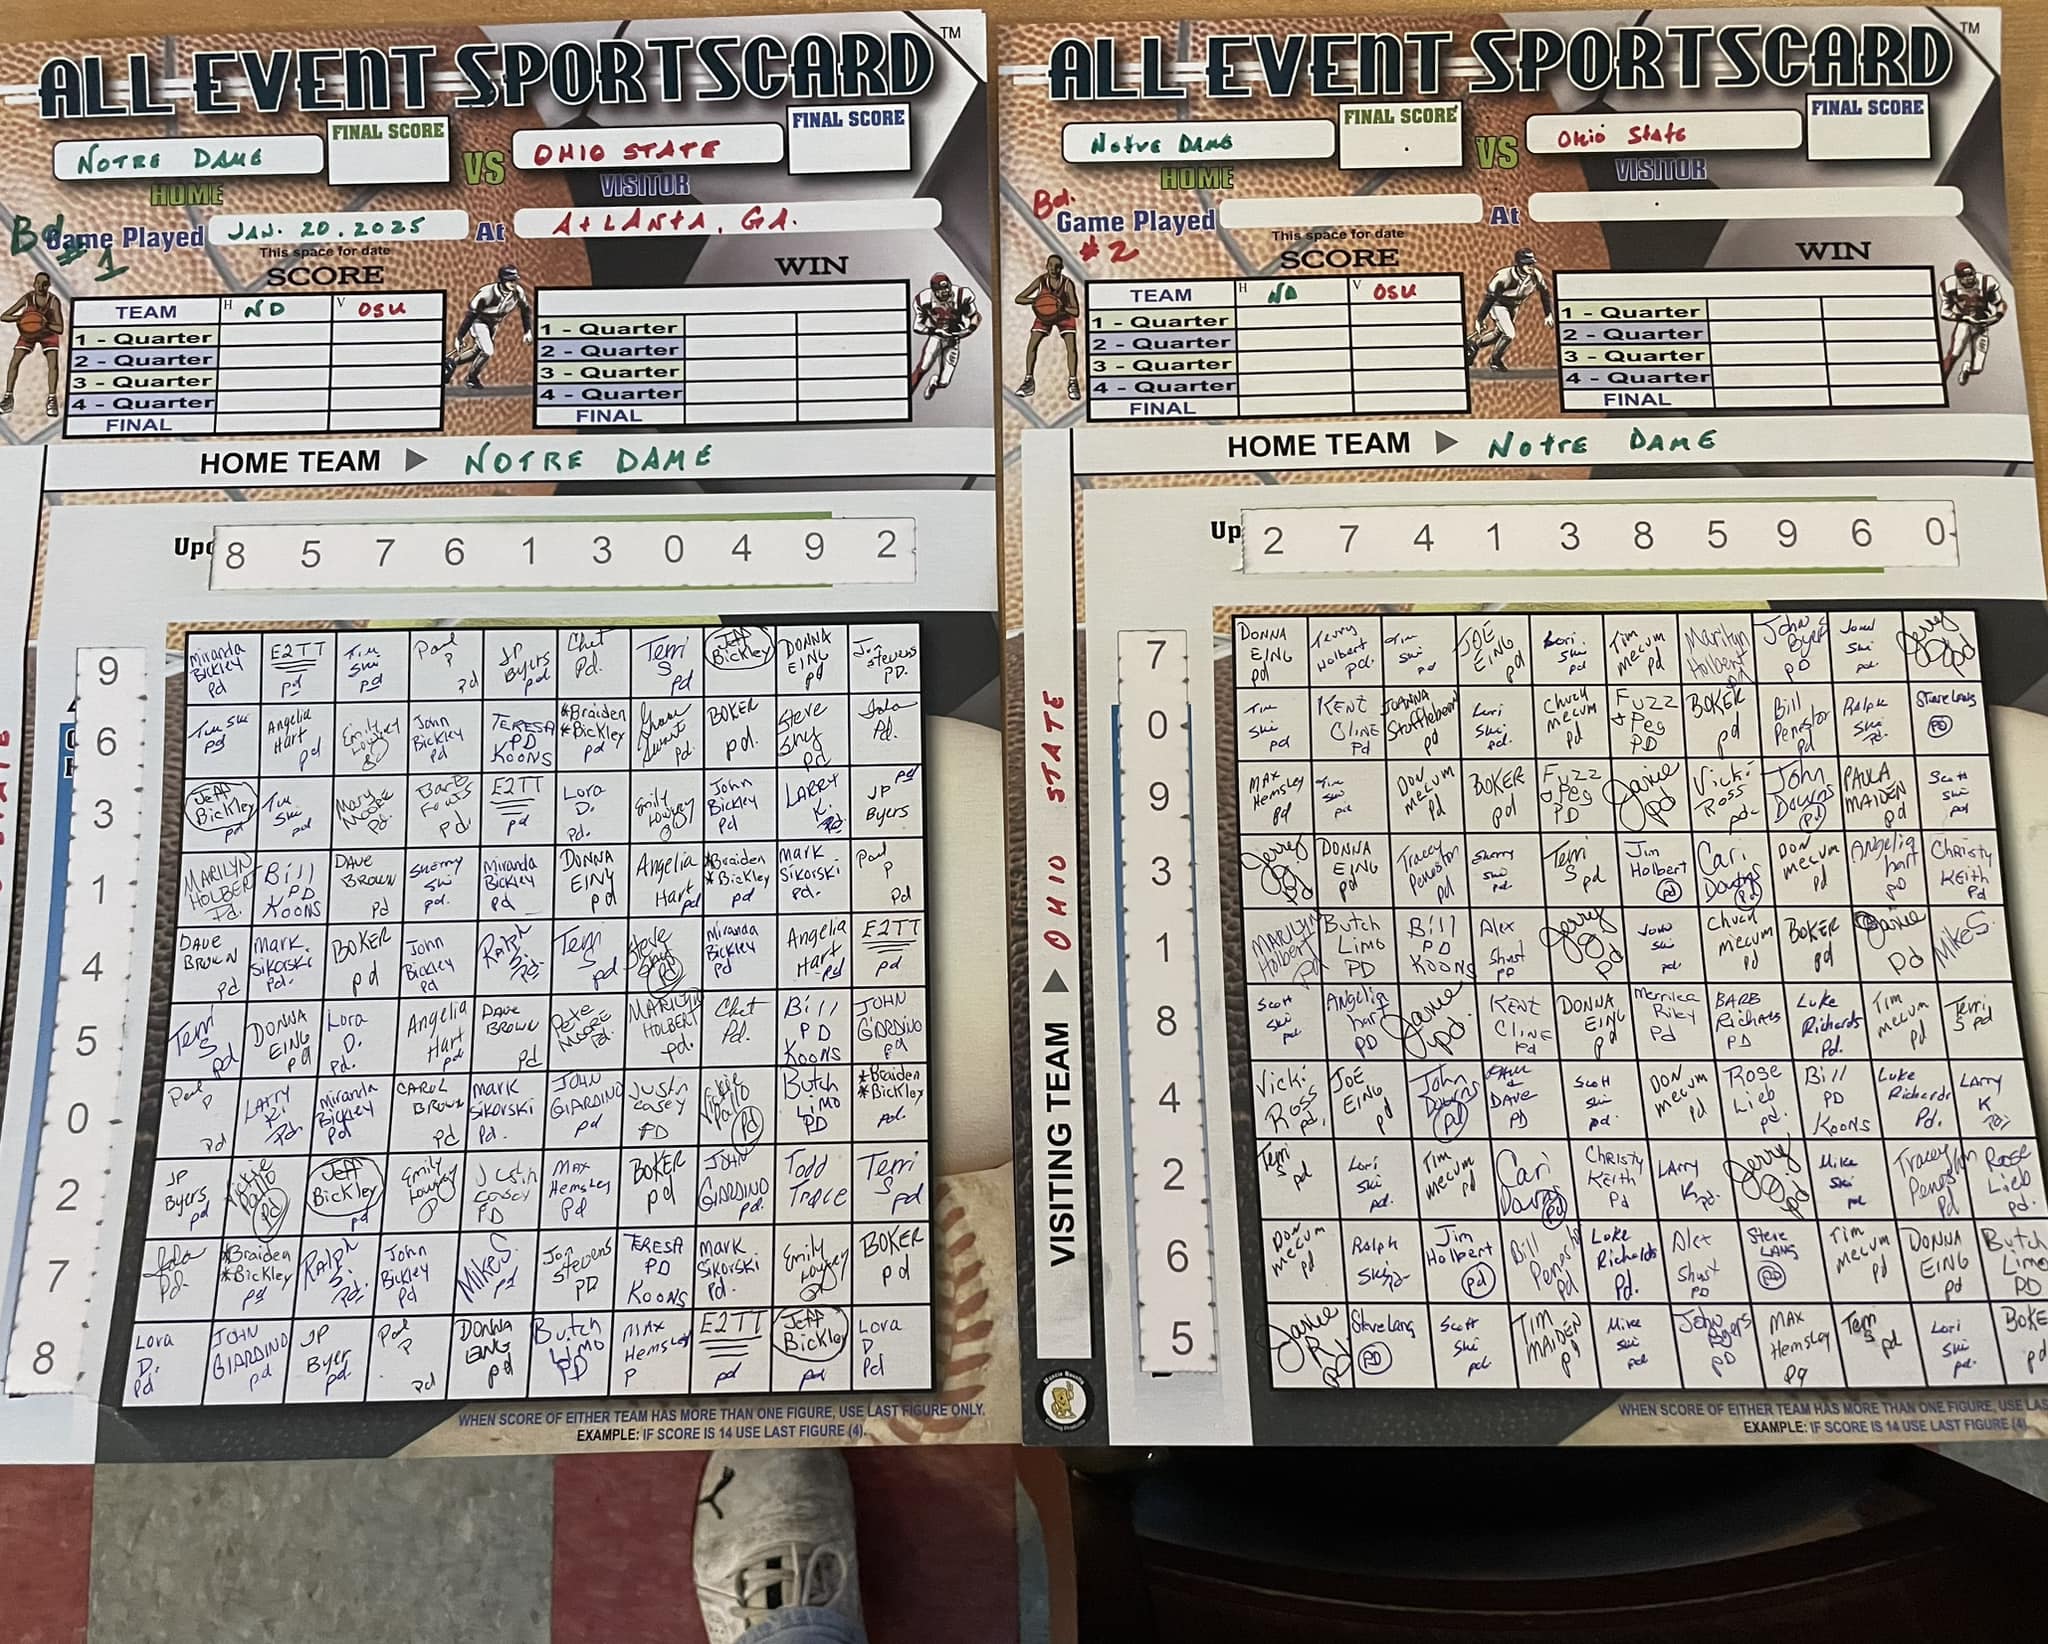 ALL EVENT SPORTSCARD TM
FINAL SCORE
FINAL SCORE
NOTRE DAME VS OHIO STATE
HOME VISITOR
Bd #1
Game Played JAN. 20. 2025 At ATLANTA, GA.
This space for date
SCORE WIN
TEAM H ND V OSU
1 - Quarter 1 - Quarter
2 - Quarter 2 - Quarter
3 - Quarter 3 - Quarter
4 - Quarter 4 - Quarter
FINAL FINAL
HOME TEAM NOTRE DAME
8 5 7 6 1 3 0 4 9 2
9 Miranda Bickley pd E2TT pd Tim Ski pd Paul P pd JP Byers pd Chet Pd. Terri S pd Jeff Bickley DONNA EING pd Jon Stevens PD.
6 Tim Ski pd Angelia Hart pd Emily John Bickley Pd TERESA PD KOONS *Braiden *Bickley pd BOKER pd. Steve pd Pd.
3 Jeff Bickley pd Tim Ski pd Mary Moore Pd. Barb Fouts Pd. E2TT pd Lora D. Pd. Emily John Bickley Pd LARRY K. Pd. JP Byers pd
1 MARILYN HOLBERT Pd. Bill PD KOONS DAVE BROWN Pd Sherry Ski pd. Miranda Bickley Pd DONNA EING pd Angelia Hart pd *Braiden *Bickley pd Mark Sikorski Pd. Paul P Pd
4 DAVE BROWN Pd Mark Sikorski Pd. BOKER pd John Bickley Pd Ralph S. Pd. Terri S pd Steve pd Miranda Bickley Pd Angelia Hart Pd E2TT pd
5 Terri S pd DONNA EING pd Lora D. Pd. Angelia Hart pd DAVE BROWN Pd Pete Moore Pd. MARILYN HOLBERT Pd. Chet Pd. Bill PD KOONS JOHN GIARDINO pd
0 Paul P pd LARRY K. Pd. Miranda Bickley Pd CAROL BROWN Pd Mark Sikorski Pd. JOHN GIARDINO pd Justin Casey PD Vickie Pd Butch Limo PD *Braiden *Bickley pd.
2 JP Byers pd Vickie Pd Jeff Bickley pd Emily Justin Casey PD Max Hemsley Pd BOKER pd JOHN GIARDINO pd. Todd Trace Terri S pd
7 Pd. *Braiden *Bickley pd Ralph S. Pd. John Bickley Pd Mike S. pd Jon Stevens PD TERESA PD KOONS Mark Sikorski Pd. Emily BOKER pd
8 Lora D. Pd JOHN GIARDINO pd JP Byer pd. Paul P pd DONNA EING pd Butch Limo PD Max Hemsley P E2TT pd Jeff Bickley pd Lora D Pd
WHEN SCORE OF EITHER TEAM HAS MORE THAN ONE FIGURE, USE LAST FIGURE ONLY.
EXAMPLE: IF SCORE IS 14 USE LAST FIGURE (4).
ALL EVENT SPORTSCARD TM
FINAL SCORE
FINAL SCORE
Notre Dame VS Ohio State
HOME VISITOR
Bd. #2
Game Played At
This space for date
SCORE WIN
TEAM H ND V OSU
1 - Quarter 1 - Quarter
2 - Quarter 2 - Quarter
3 - Quarter 3 - Quarter
4 - Quarter 4 - Quarter
FINAL FINAL
HOME TEAM Notre DAME
VISITING TEAM OHIO STATE
2 7 4 1 3 8 5 9 6 0
7 DONNA EING pd Terry Holbert pd. Tim Ski pd JOE EING pd Lori Ski pd Tim mecum Pd Marilyn Holbert Pd John Byers PD John Ski pd. Jerry Pd
0 Tim Ski pd KENT CLINE Pd JOANNA Stoffleben pd Lori Ski pd. Chuck mecum Pd Fuzz + Peg PD BOKER pd Bill Penrston pd Ralph Ski Pd. Steve Lang PD
9 MAX Hemsley pd Tim Ski pd DON mecum Pd BOKER pd Fuzz + Peg PD Janie Pd Vicki Ross pd. John Downs pd PAULA MAIDEN pd Scott Ski pd
3 Jerry Pd DONNA EING pd Tracey Penrston pd Sherry Ski pd. Terri S pd Jim Holbert pd Cari Downs pd DON mecum Pd Angelia hart PD Christy KEITH Pd
1 MARILYN Holbert Pd Butch Limo PD Bill PD KOONS Alex Shust PD Jerry Pd John Ski pd. Chuck mecum Pd BOKER pd Janie Pd Mike S.
8 Scott Ski pd. Angelia hart PD Janie pd. KENT CLINE Pd DONNA EING pd Merrilea Riley Pd BARB Richards PD Luke Richards Pd. Tim mecum Pd Terri S pd
4 Vicki Ross pd. JOE EING pd John Downs pd DAVE PD Scott Ski pd. DON mecum Pd Rose Lieb pd. Bill PD KOONS Luke Richards Pd. LARRY K Pd.
2 Terri S pd Lori Ski pd. Tim mecum Pd Cari Downs pd Christy KEITH Pd LARRY K. Pd. Jerry Pd Mike Ski pd Tracey Penrston Pd Rose Lieb pd.
6 DON mecum Pd Ralph Ski Jim Holbert pd Bill Penrston pd Luke Richards Pd. Alex Shust PD Steve LANG PD Tim mecum Pd DONNA EING pd Butch Limo PD
5 Janie R Pd Steve Lang PD Scott Ski pd. Tim MAIDEN pd Mike Ski pd John Byers PD MAX Hemsley pd Terri S pd Lori Ski pd. BOKE pd
WHEN SCORE OF EITHER TEAM HAS MORE THAN ONE FIGURE, USE LAS
EXAMPLE: IF SCORE IS 14 USE LAST FIGURE (4).